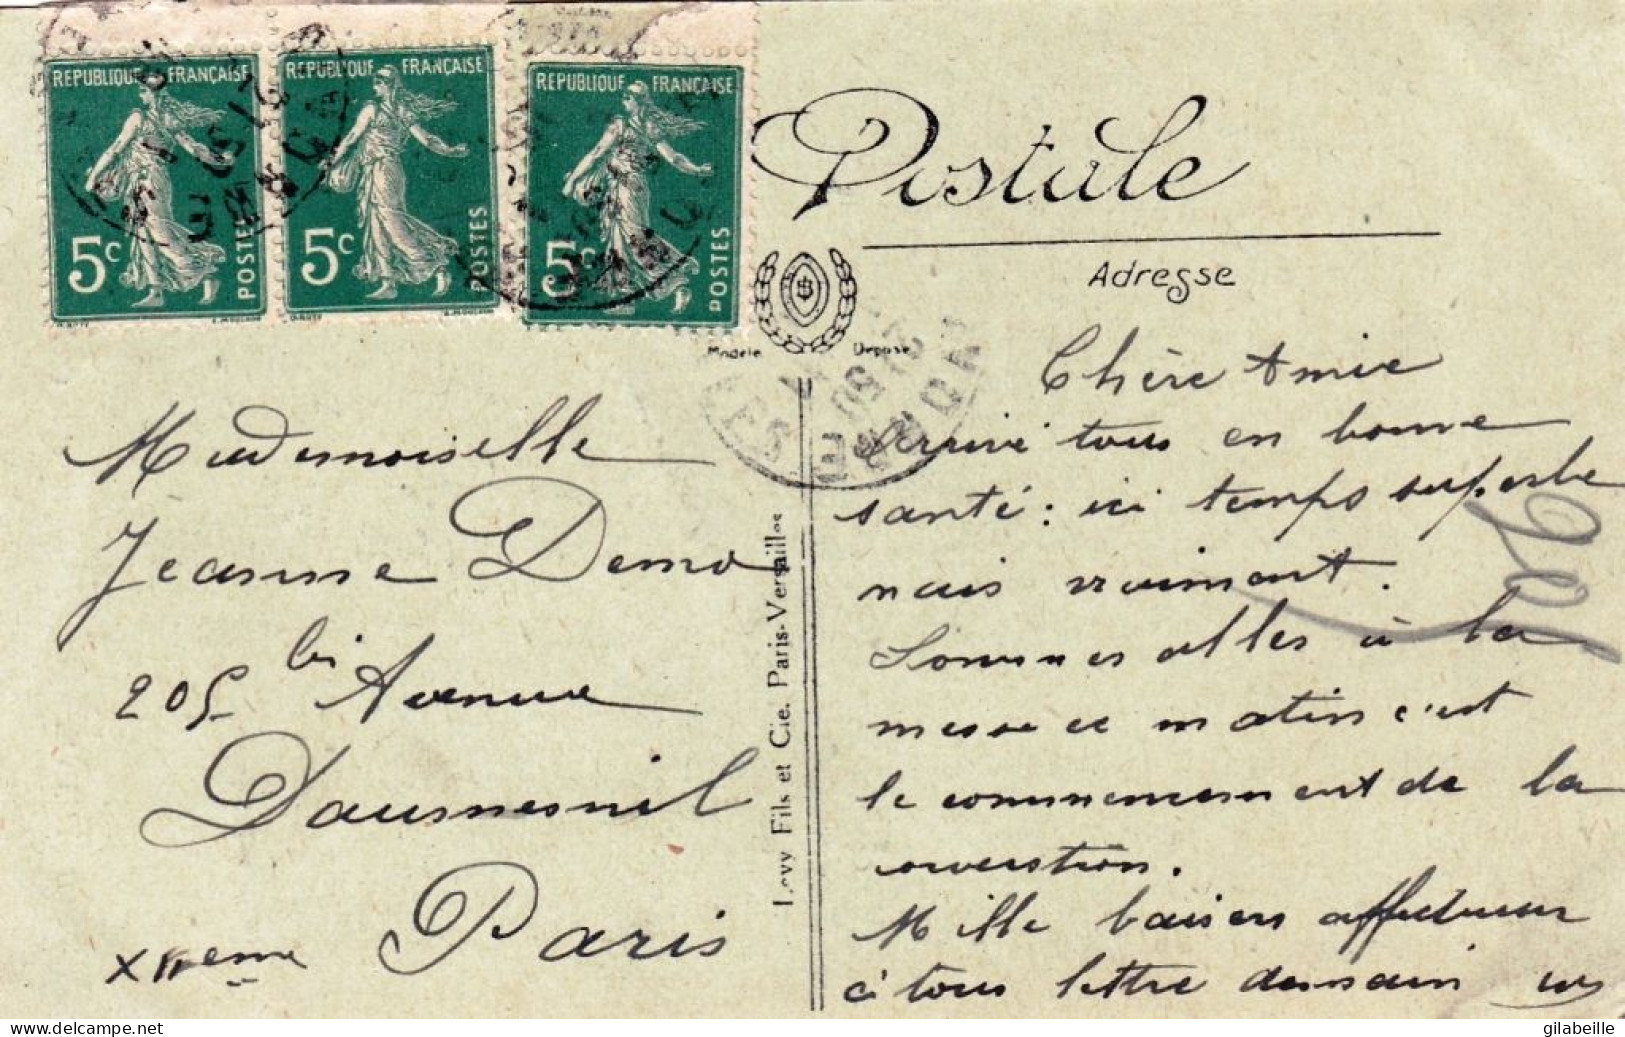 REPUBLIQUE FRANÇAISE
5c
POSTES
REPUBLIQUE FRANÇAISE
5c
POSTES
REPUBLIQUE FRANÇAISE
5c
POSTES
Postale
Adresse
Modèle Déposé
Mademoiselle
Jeanne Demo
205 bis Avenue
Daumesnil
Paris
XIIeme
Levy Fils et Cie. Paris-Versailles
Chère Amie
Arrivé tous en bonne
santé: ici temps superbe
mais vraiment.
Sommes allés à la
messe ce matin c'est
le commencement de la
conversion.
Mille baisers affectueux
à tous lettre demain
www.delcampe.net
gilabeille